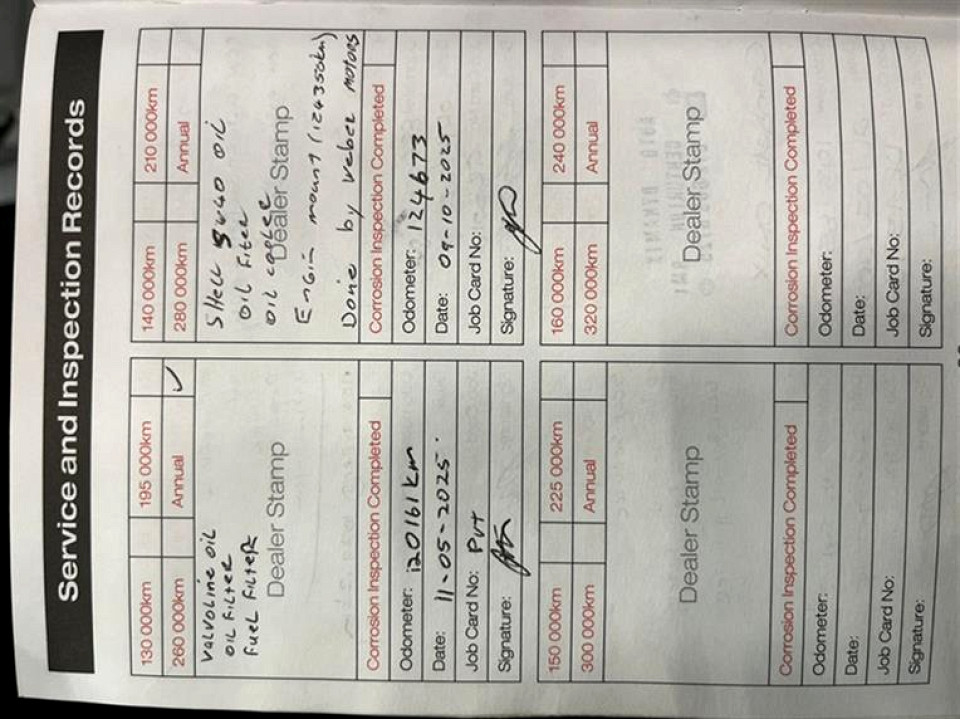 Service and Inspection Records
130 000km 195 000km
260 000km Annual ✓
Valvoline oil
oil Filter
Fuel Filter
Dealer Stamp
Corrosion Inspection Completed
Odometer: 120161 km
Date: 11-05-2025
Job Card No: Pvt
Signature:
140 000km 210 000km
280 000km Annual
SHELL 5W40 OIL
OIL Filter
OIL
Dealer Stamp
Engin mount (124350km)
Done by Weber motors
Corrosion Inspection Completed
Odometer: 124673
Date: 09-10-2025
Job Card No:
Signature:
150 000km 225 000km
300 000km Annual
Dealer Stamp
Corrosion Inspection Completed
Odometer:
Date:
Job Card No:
Signature:
160 000km 240 000km
320 000km Annual
Dealer Stamp
Corrosion Inspection Completed
Odometer:
Date:
Job Card No:
Signature: